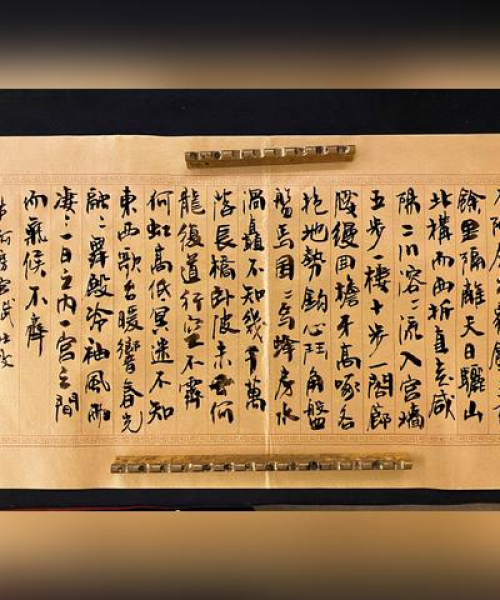 餘里隔離天日驪山
北構而西折直走咸
陽二川溶〻流入宮墻
五步一樓十步一閣廊
腰縵回檐牙高啄各
抱地勢鈎心鬥角盤
盤焉囷〻焉蜂房水
渦矗不知幾千萬
落長橋卧波未雲何
龍復道行空不霽
何虹高低冥迷不知
東西歌台暖響春光
融〻舞殿冷袖風雨
凄〻一日之内一宮之間
而氣候不齊